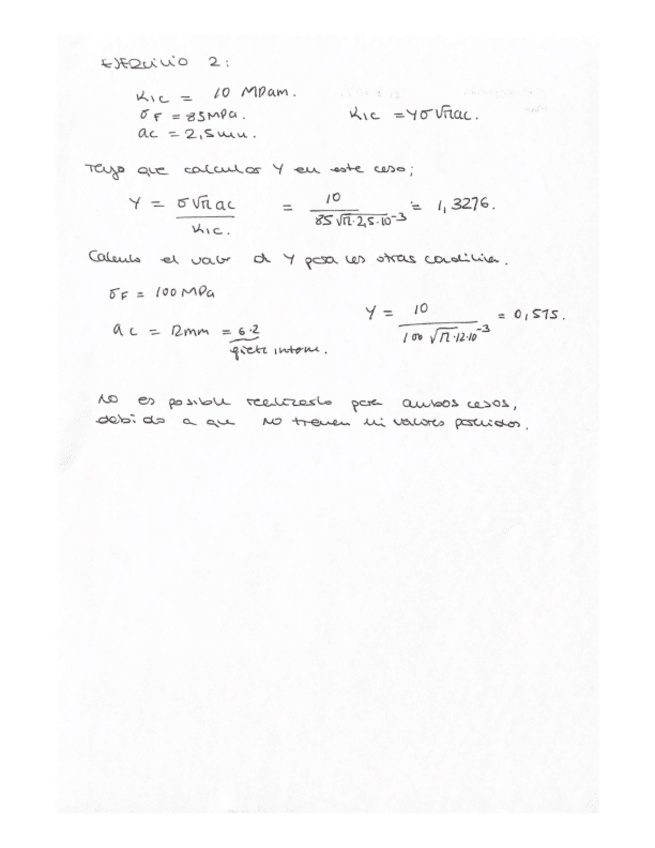 EJERCICIO 2:
K1C = 10 MPam.
σF = 85MPa. K1C = Yσ√πac.
ac = 2,5mm.
Tengo que calcular Y en este caso;
Y = σ√πac / K1C. = 10 / 85√π·2,5·10⁻³ = 1,3276.
Calculo el valor de Y para las otras condiciones.
σF = 100MPa
ac = 12mm = 6·2 Y = 10 / 100√π·12·10⁻³ = 0,515.
grieta interna.
No es posible realizarlo para ambos casos,
debido a que no tienen ni valores parecidos.